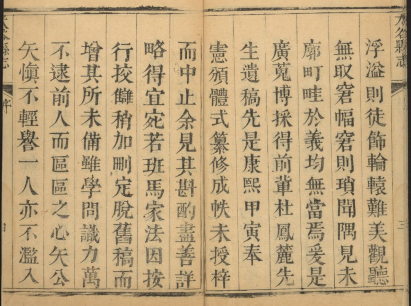 浮溢則徒飾輪轅難美觀聽
無取窘幅窘則瑣聞隅見未
廓町畦於義均無當焉爰是
廣蒐博採得前軰杜鳳麓先
生遺稿先是康熙甲寅奉
憲頒體式纂修成帙未授梓
而中止余見其斟酌盡善詳
略得宜宛若班馬家法因按
行挍讎稍加刪定脫舊稿而
增其所未備雖學問識力萬
不逮前人而區區之心矢公
矢慎不輕譽一人亦不濫入
序